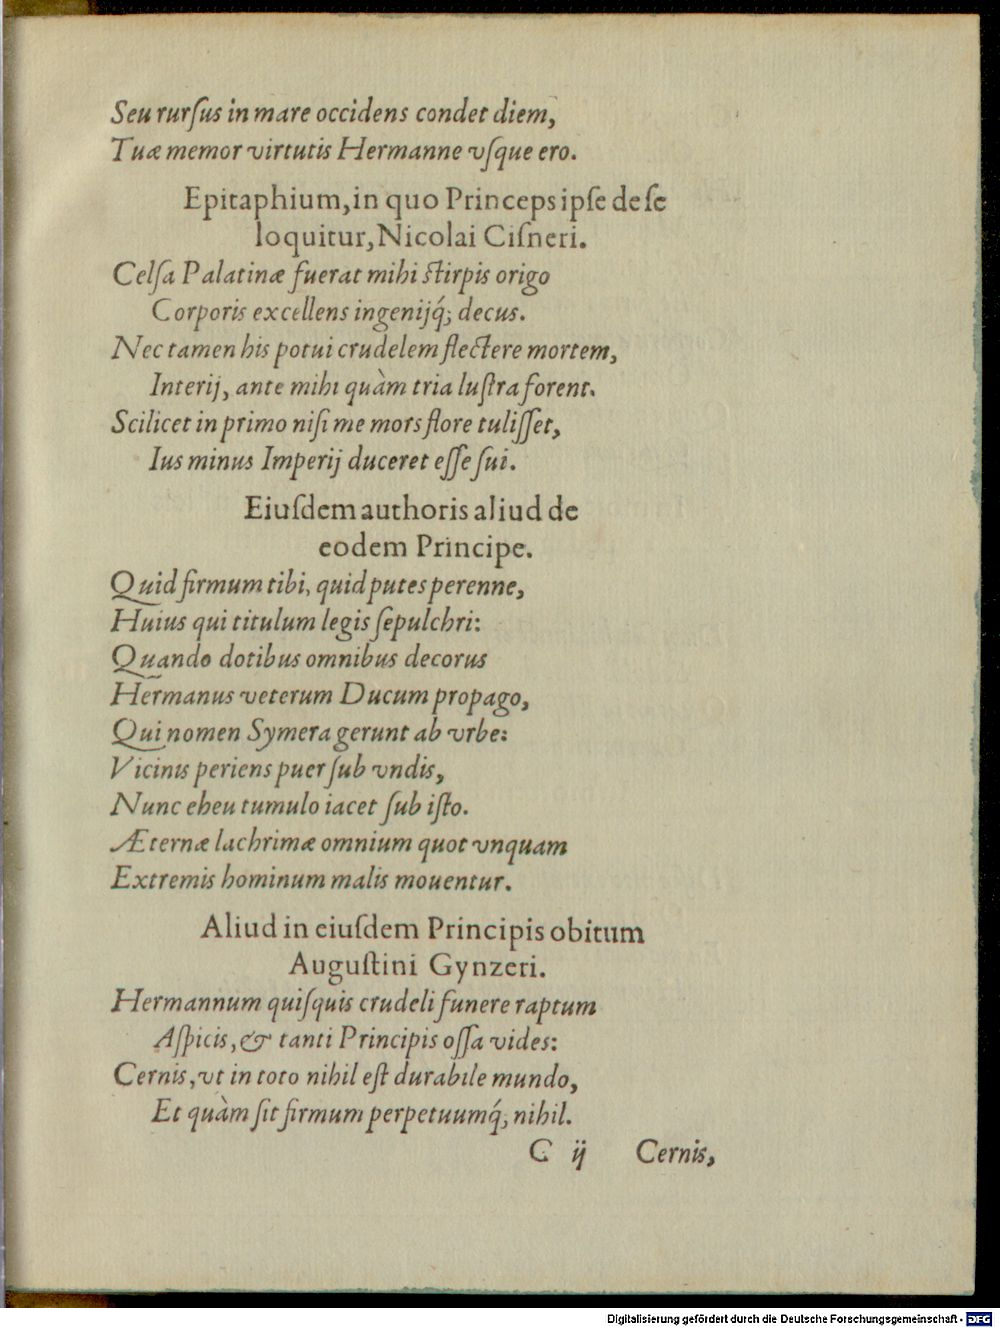 Seu rurſus in mare occidens condet diem,
Tuæ memor virtutis Hermanne vſque ero.
Epitaphium, in quo Princeps ipſe de ſe
loquitur, Nicolai Ciſneri.
Celſa Palatinæ fuerat mihi ſtirpis origo
Corporis excellens ingenijq́; decus.
Nec tamen his potui crudelem flectere mortem,
Interij, ante mihi quàm tria luſtra forent.
Scilicet in primo niſi me mors flore tuliſſet,
Ius minus Imperij duceret eſſe ſui.
Eiuſdem authoris aliud de
eodem Principe.
Quid firmum tibi, quid putes perenne,
Huius qui titulum legis ſepulchri:
Quando dotibus omnibus decorus
Hermanus veterum Ducum propago,
Qui nomen Symera gerunt ab vrbe:
Vicinis periens puer ſub vndis,
Nunc eheu tumulo iacet ſub iſto.
Æternæ lachrimæ omnium quot vnquam
Extremis hominum malis mouentur.
Aliud in eiuſdem Principis obitum
Auguſtini Gynzeri.
Hermannum quiſquis crudeli funere raptum
Aſpicis, & tanti Principis oſſa vides:
Cernis, vt in toto nihil eſt durabile mundo,
Et quàm ſit firmum perpetuumq́; nihil.
C ij Cernis,
Digitalisierung gefördert durch die Deutsche Forschungsgemeinschaft - DFG